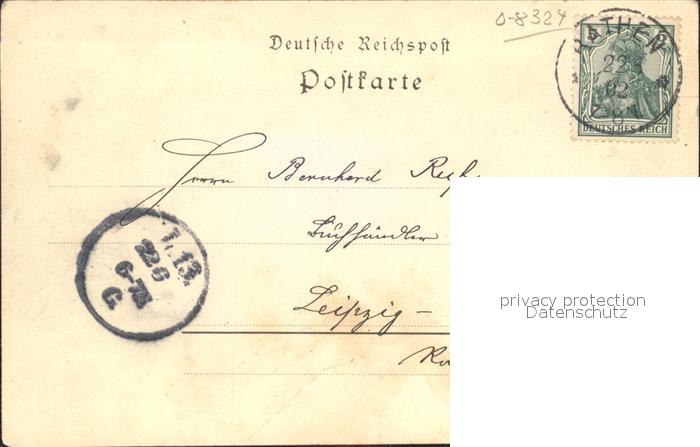 0-8324
Deutsche Reichspost
Postkarte
RATHEN
22
02
DEUTSCHES REICH
Herrn Bernhard
Buchhändler
Leipzig –
L. 13.
22 6
6-7
G
privacy protection
Datenschutz